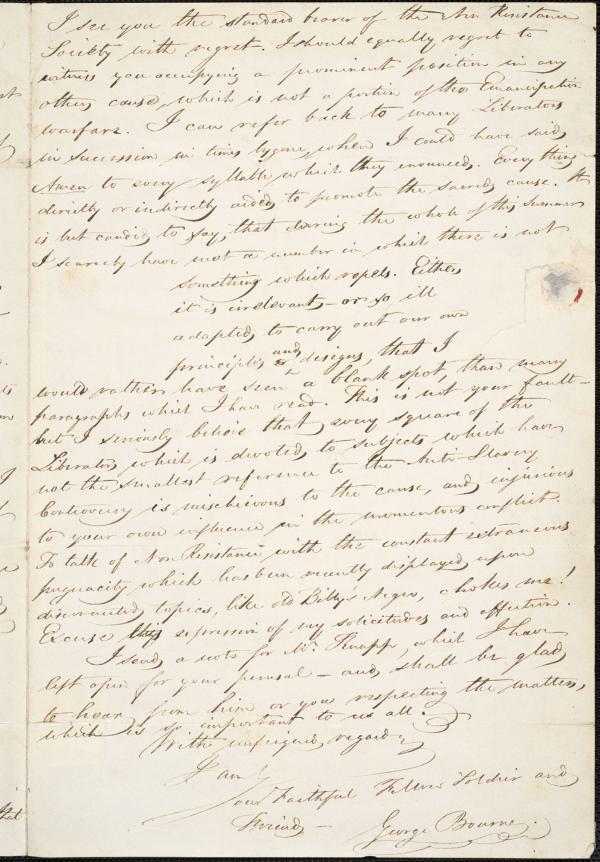 I see you the standard bearer of the Non Resistance
Society with regret. I should equally regret to
witness you occupying a prominent position in any
other cause, which is not a portion of the Emancipation
warfare. I can refer back to many Liberators
in succession, in times bygone, when I could have said,
Amen to every syllable which they announced. Every thing
directly or indirectly aided to promote the sacred cause. It
is but candid to say, that during the whole of this summer
I scarcely have met a number in which there is not
something which repels. Either
it is irrelevant - or so ill
adapted, to carry out our own
principles and designs, that I
would rather have seen a blank spot, than many
paragraphs which I have read. This is not your fault -
but I seriously believe that every square of the
Liberator, which is devoted to subjects which have
not the smallest reference to the Anti-Slavery
Controversy is mischievous to the cause, and injurious
to your own influence in the momentous conflict.
To talk of Non Resistance with the constant extraneous
pugnacity which has been recently displayed upon
disconnected topics, like old Billy's Negro, chokes me!
Excuse this expression of my solicitude and affection.
I send a note for Mr. Knapp, which I have
left open for your perusal - and shall be glad
to hear from him or you respecting the matter,
which is so important to us all.
With unfeigned regard,
I am
your Faithful Fellow Soldier and
Friend -
George Bourne.
that